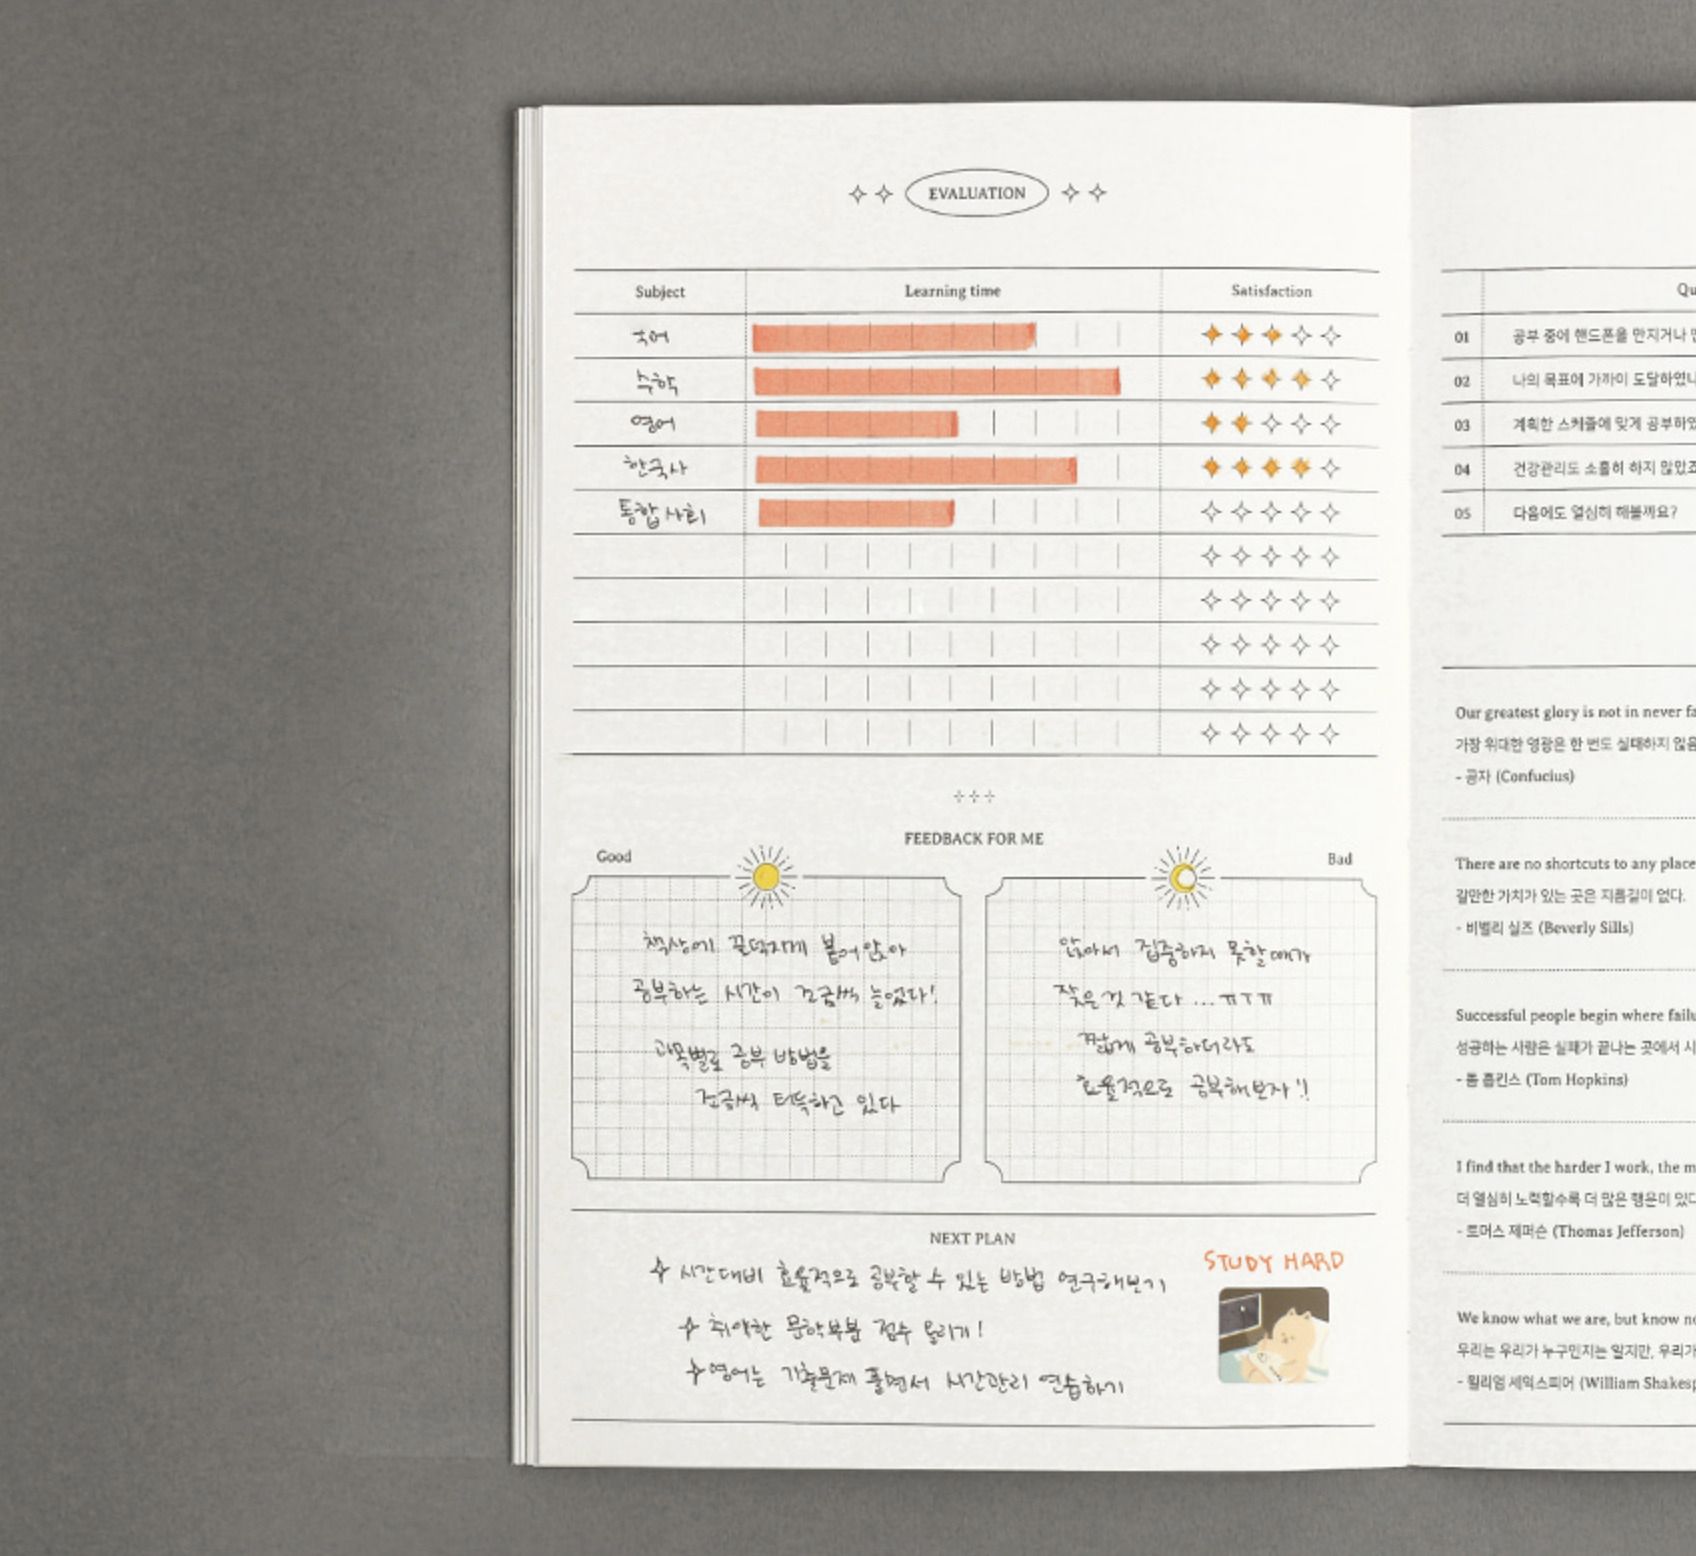 EVALUATION
Subject Learning time Satisfaction
국어
수학
영어
한국사
통합사회
FEEDBACK FOR ME
Good
책상에 끈덕지게 붙어앉아
공부하는 시간이 조금씩 늘었다!
과목별로 공부 방법을
조금씩 터득하고 있다
Bad
앉아서 집중하지 못할때가
잦은것 같다 ... ㅠㅜㅠ
짧게 공부하더라도
효율적으로 공부해보자!!
NEXT PLAN
시간대비 효율적으로 공부할 수 있는 방법 연구해보기
취약한 문학부분 점수 올리기!
영어는 기출문제 풀면서 시간관리 연습하기
STUDY HARD
Qu
01 공부 중에 핸드폰을 만지거나
02 나의 목표에 가까이 도달하였나
03 계획한 스케줄에 맞게 공부하였
04 건강관리도 소홀히 하지 않았죠
05 다음에도 열심히 해볼까요?
Our greatest glory is not in never fa
가장 위대한 영광은 한 번도 실패하지 않음
- 공자 (Confucius)
There are no shortcuts to any place
갈만한 가치가 있는 곳은 지름길이 없다.
- 비벌리 실즈 (Beverly Sills)
Successful people begin where failu
성공하는 사람은 실패가 끝나는 곳에서 시
- 톰 홉킨스 (Tom Hopkins)
I find that the harder I work, the m
더 열심히 노력할수록 더 많은 행운이 있다
- 토머스 제퍼슨 (Thomas Jefferson)
We know what we are, but know no
우리는 우리가 누구인지는 알지만, 우리가
- 윌리엄 셰익스피어 (William Shakesp